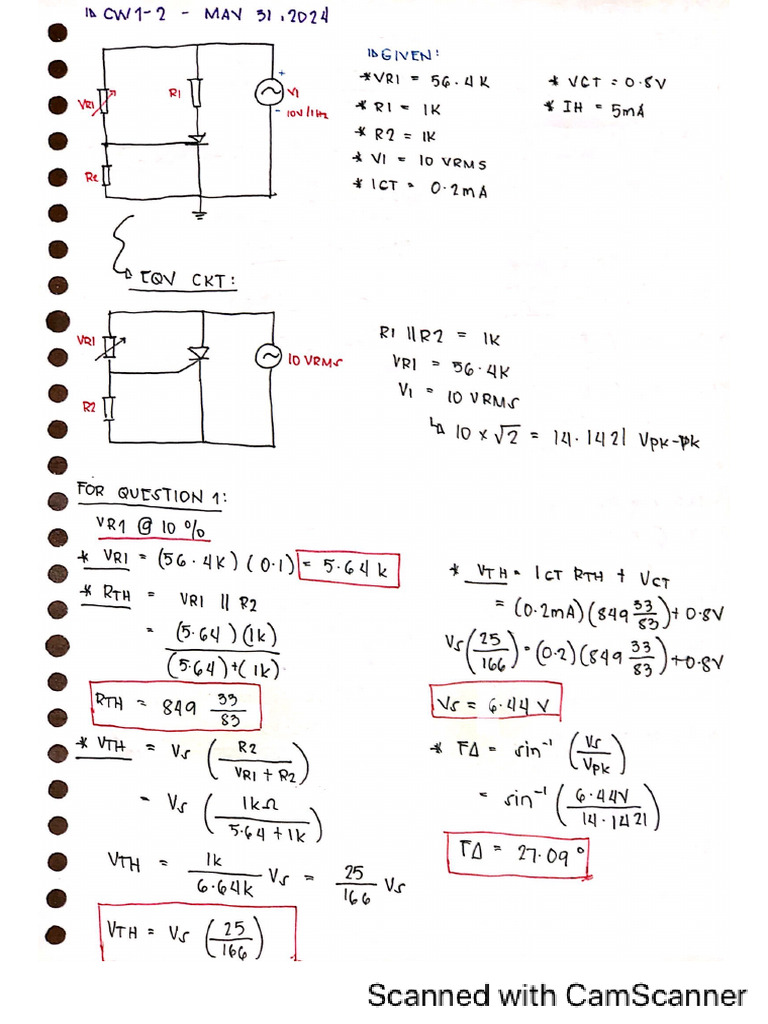 CW1-2 - MAY 31, 2024
GIVEN:
* VR1 = 56.4K
* R1 = 1K
* R2 = 1K
* V1 = 10 VRMS
* ICT = 0.2mA
* VCT = 0.8V
* IH = 5mA
VR1
R1
R2
V1
+
-
10V/1Hz
EQV CKT:
VR1
R2
10 VRMS
R1 || R2 = 1K
VR1 = 56.4K
V1 = 10 VRMS
↳ 10 × √2 = 14.1421 Vpk-pk
FOR QUESTION 1:
VR1 @ 10%
* VR1 = (56.4K)(0.1) = 5.64k
* RTH = VR1 || R2
= (5.64)(1k) / (5.64)+(1k)
RTH = 849 33/83
* VTH = Vs (R2 / VR1 + R2)
= Vs (1kΩ / 5.64 + 1k)
VTH = 1k / 6.64k Vs = 25/166 Vs
VTH = Vs (25/166)
* VTH = ICT RTH + VCT
= (0.2mA)(849 33/83) + 0.8V
Vs (25/166) = (0.2)(849 33/83) + 0.8V
Vs = 6.44V
* FΔ = sin⁻¹ (Vs / Vpk)
= sin⁻¹ (6.44V / 14.1421)
FΔ = 27.09°
Scanned with CamScanner